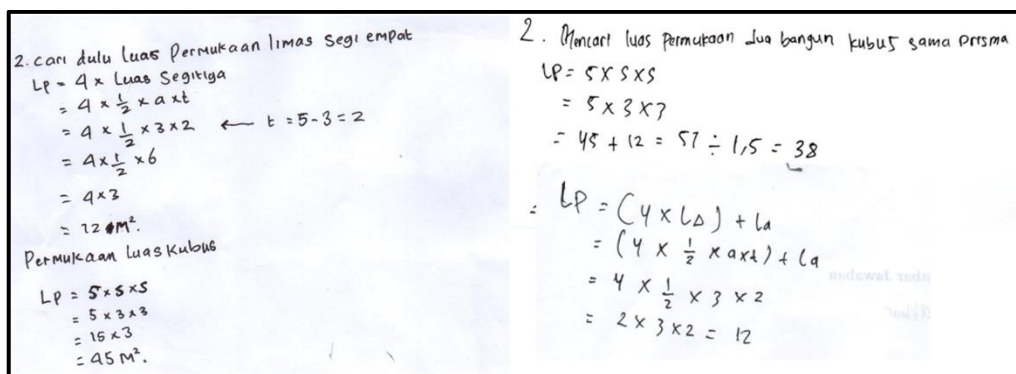 2. cari dulu luas Permukaan limas segi empat
LP = 4 x Luas Segitiga
= 4 x 1/2 x a x t
= 4 x 1/2 x 3 x 2 ← t = 5 - 3 = 2
= 4 x 1/2 x 6
= 4 x 3
= 12 M².
Permukaan Luas Kubus
LP = 5 x s x s
= 5 x 3 x 3
= 15 x 3
= 45 M².
2. Mencari luas Permukaan dua bangun kubus sama Prisma
LP = 5 x s x s
= 5 x 3 x 3
= 45 + 12 = 57 ÷ 1,5 = 38
= LP = (4 x L△) + La
= (4 x 1/2 x a x t) + La
= 4 x 1/2 x 3 x 2
= 2 x 3 x 2 = 12